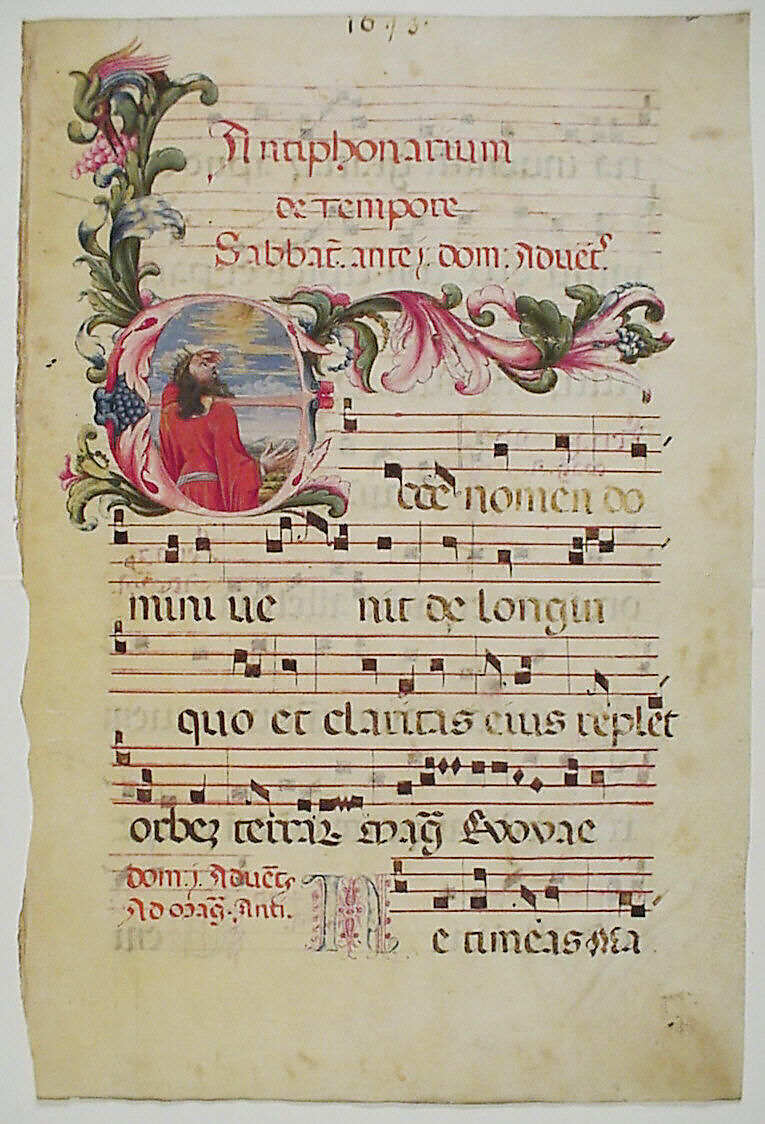 1693.
Antiphonarium
de Tempore
Sabbat̄. ante j. dom: Aduēt⁹.
Ecce nomen do
mini ue nit de longin
quo et claritas eius replet
orbeʒ terraꝝ Mag̃ Evovae
dom. j. Aduēt⁹
Ad Mag̃. Anti.
Ne timeas Ma